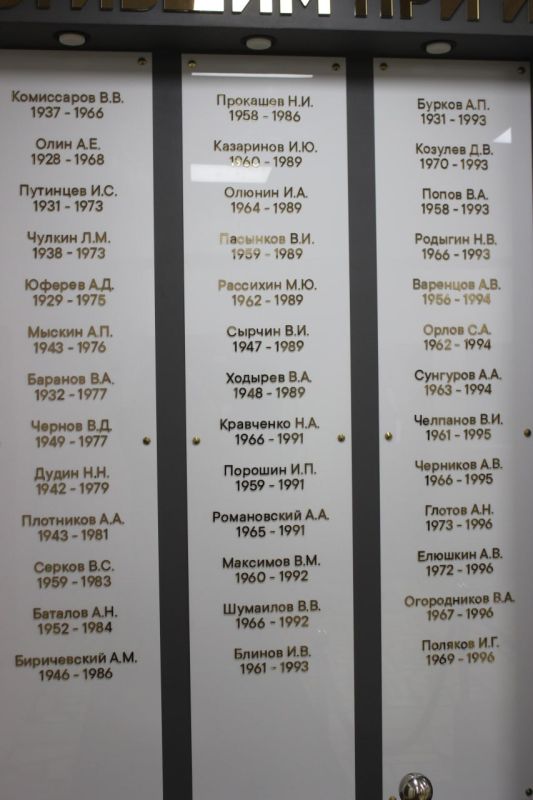 ПРИ И
Комиссаров В.В.
1937 - 1966
Олин А.Е.
1928 - 1968
Путинцев И.С.
1931 - 1973
Чулкин Л.М.
1938 - 1973
Юферев А.Д.
1929 - 1975
Мыскин А.П.
1943 - 1976
Баранов В.А.
1932 - 1977
Чернов В.Д.
1949 - 1977
Дудин Н.Н.
1942 - 1979
Плотников А.А.
1943 - 1981
Серков В.С.
1959 - 1983
Баталов А.Н.
1952 - 1984
Биричевский А.М.
1946 - 1986
Прокашев Н.И.
1958 - 1986
Казаринов И.Ю.
1960 - 1989
Олюнин И.А.
1964 - 1989
Пасынков В.И.
1959 - 1989
Рассихин М.Ю.
1962 - 1989
Сырчин В.И.
1947 - 1989
Ходырев В.А.
1948 - 1989
Кравченко Н.А.
1966 - 1991
Порошин И.П.
1959 - 1991
Романовский А.А.
1965 - 1991
Максимов В.М.
1960 - 1992
Шумаилов В.В.
1966 - 1992
Блинов И.В.
1961 - 1993
Бурков А.П.
1931 - 1993
Козулев Д.В.
1970 - 1993
Попов В.А.
1958 - 1993
Родыгин Н.В.
1966 - 1993
Варенцов А.В.
1956 - 1994
Орлов С.А.
1962 - 1994
Сунгуров А.А.
1963 - 1994
Челпанов В.И.
1961 - 1995
Черников А.В.
1966 - 1995
Глотов А.Н.
1973 - 1996
Елюшкин А.В.
1972 - 1996
Огородников В.А.
1967 - 1996
Поляков И.Г.
1969 - 1996